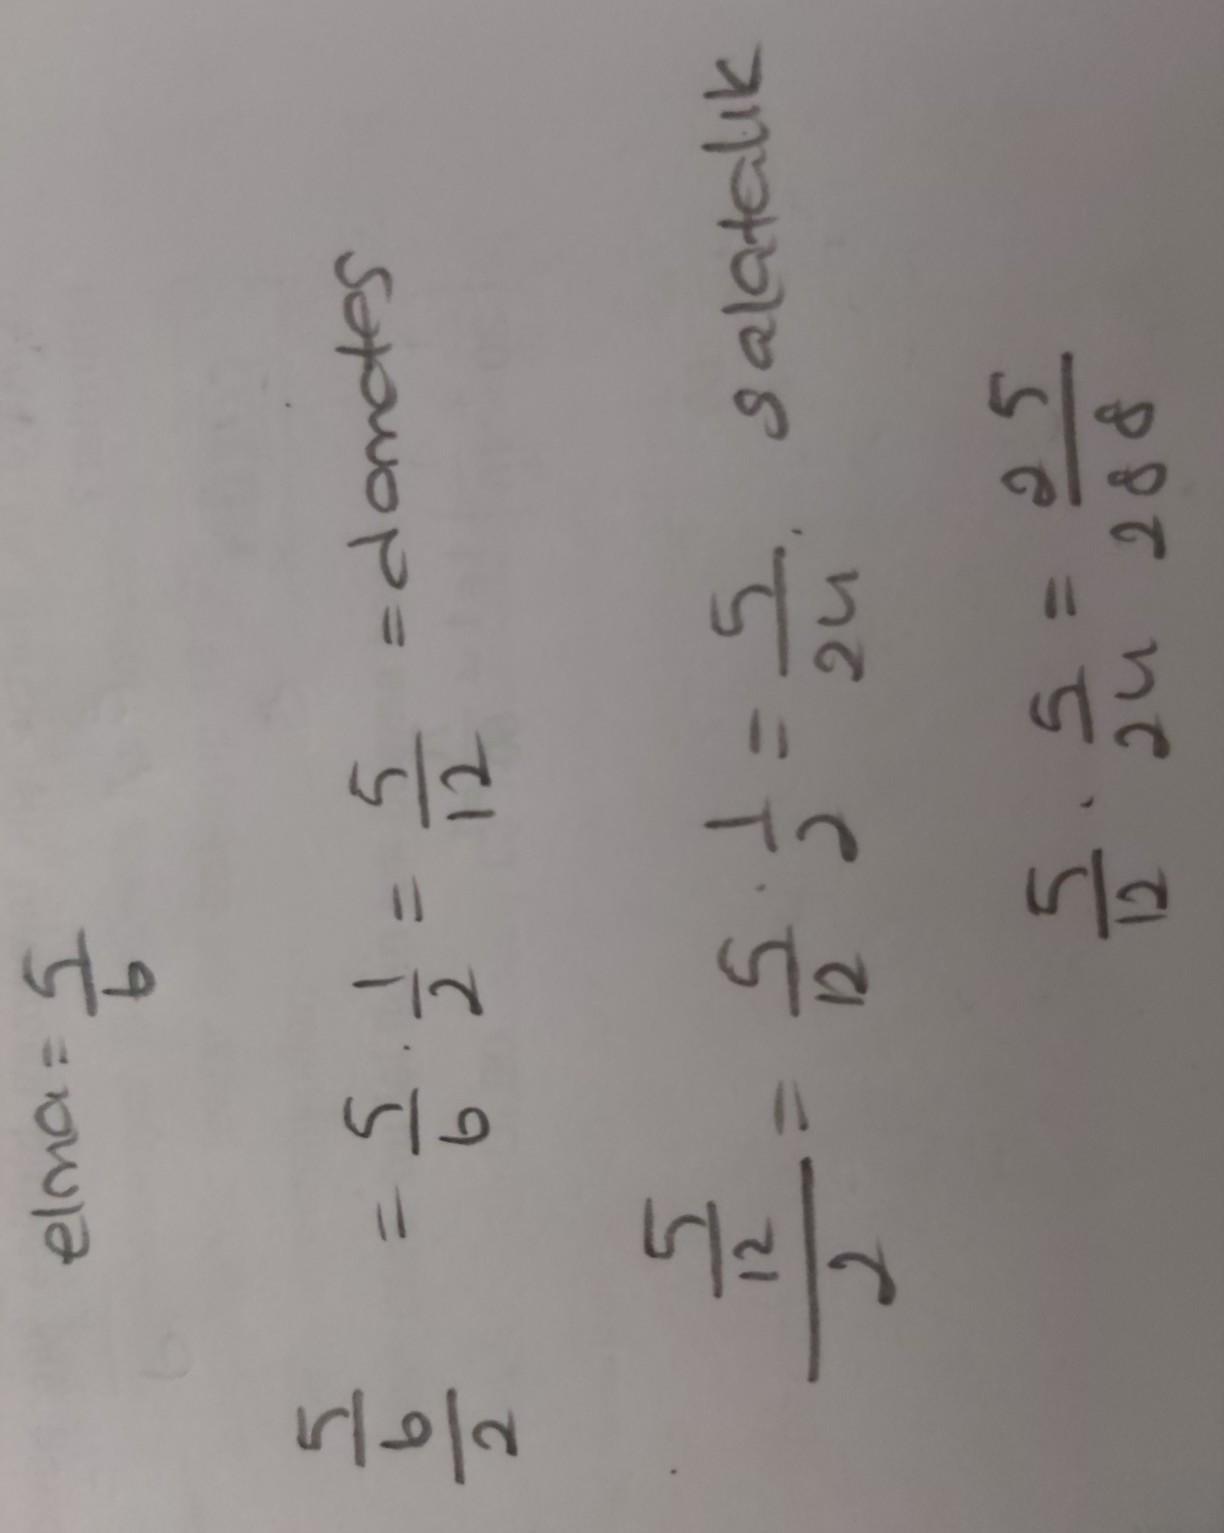 elma = 5/6
5/6/2 = 5/6 . 1/2 = 5/12 = domates
5/12/2 = 5/12 . 1/2 = 5/24 . salatalık
5/12 . 5/24 = 25/288